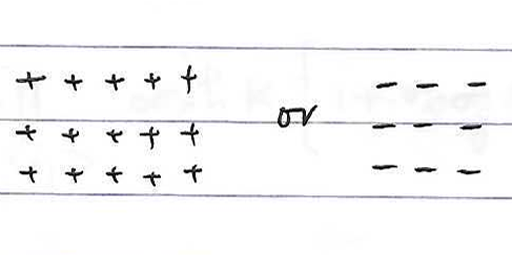 + + + + +   or   - - -
+ + + + +   - - -
+ + + + +   - - -